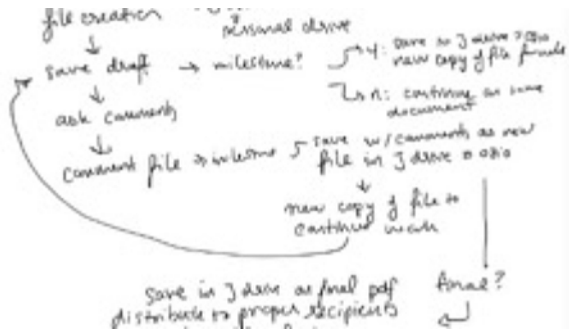 file creation
minimal drive
save draft → milestone? Y: save in J drive
new copy of file
n: continue on same
document
ask comments
comment file → milestone save w/comments as new
file in J drive
new copy of file to
continue work
save in J drive as final pdf final?
distribute to proper recipients